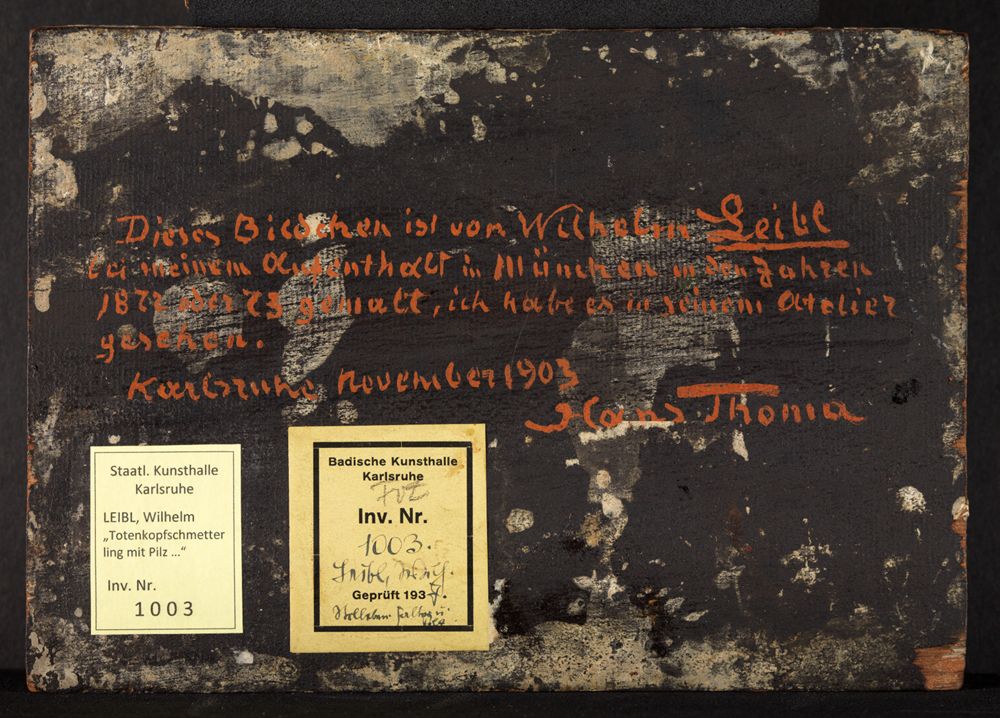 Dieses Bildchen ist von Wilhelm Leibl
bei meinem Aufenthalt in München in den Jahren
1872 oder 73 gemalt, ich habe es in seinem Atelier
gesehen.
Karlsruhe November 1903
Hans Thoma
Staatl. Kunsthalle
Karlsruhe
LEIBL, Wilhelm
„Totenkopfschmetter
ling mit Pilz ...“
Inv. Nr.
1003
Badische Kunsthalle
Karlsruhe
Inv. Nr.
1003.
Leibl,
Geprüft 1937.
Stilleben